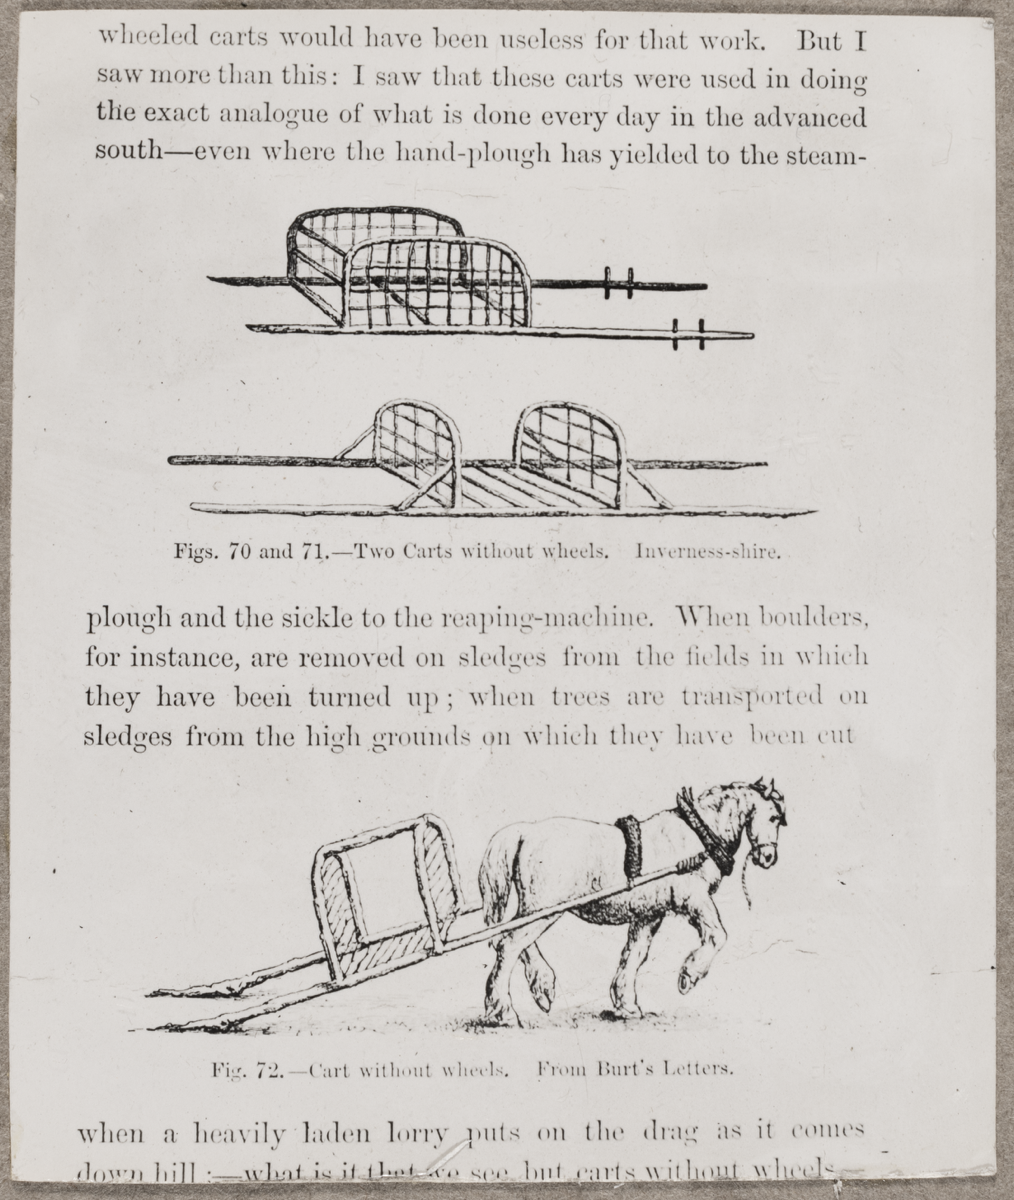 wheeled carts would have been useless for that work. But I
saw more than this: I saw that these carts were used in doing
the exact analogue of what is done every day in the advanced
south—even where the hand-plough has yielded to the steam-
Figs. 70 and 71.—Two Carts without wheels. Inverness-shire.
plough and the sickle to the reaping-machine. When boulders,
for instance, are removed on sledges from the fields in which
they have been turned up; when trees are transported on
sledges from the high grounds on which they have been cut
Fig. 72.—Cart without wheels. From Burt's Letters.
when a heavily laden lorry puts on the drag as it comes
down hill;—what is it that we see but carts without wheels